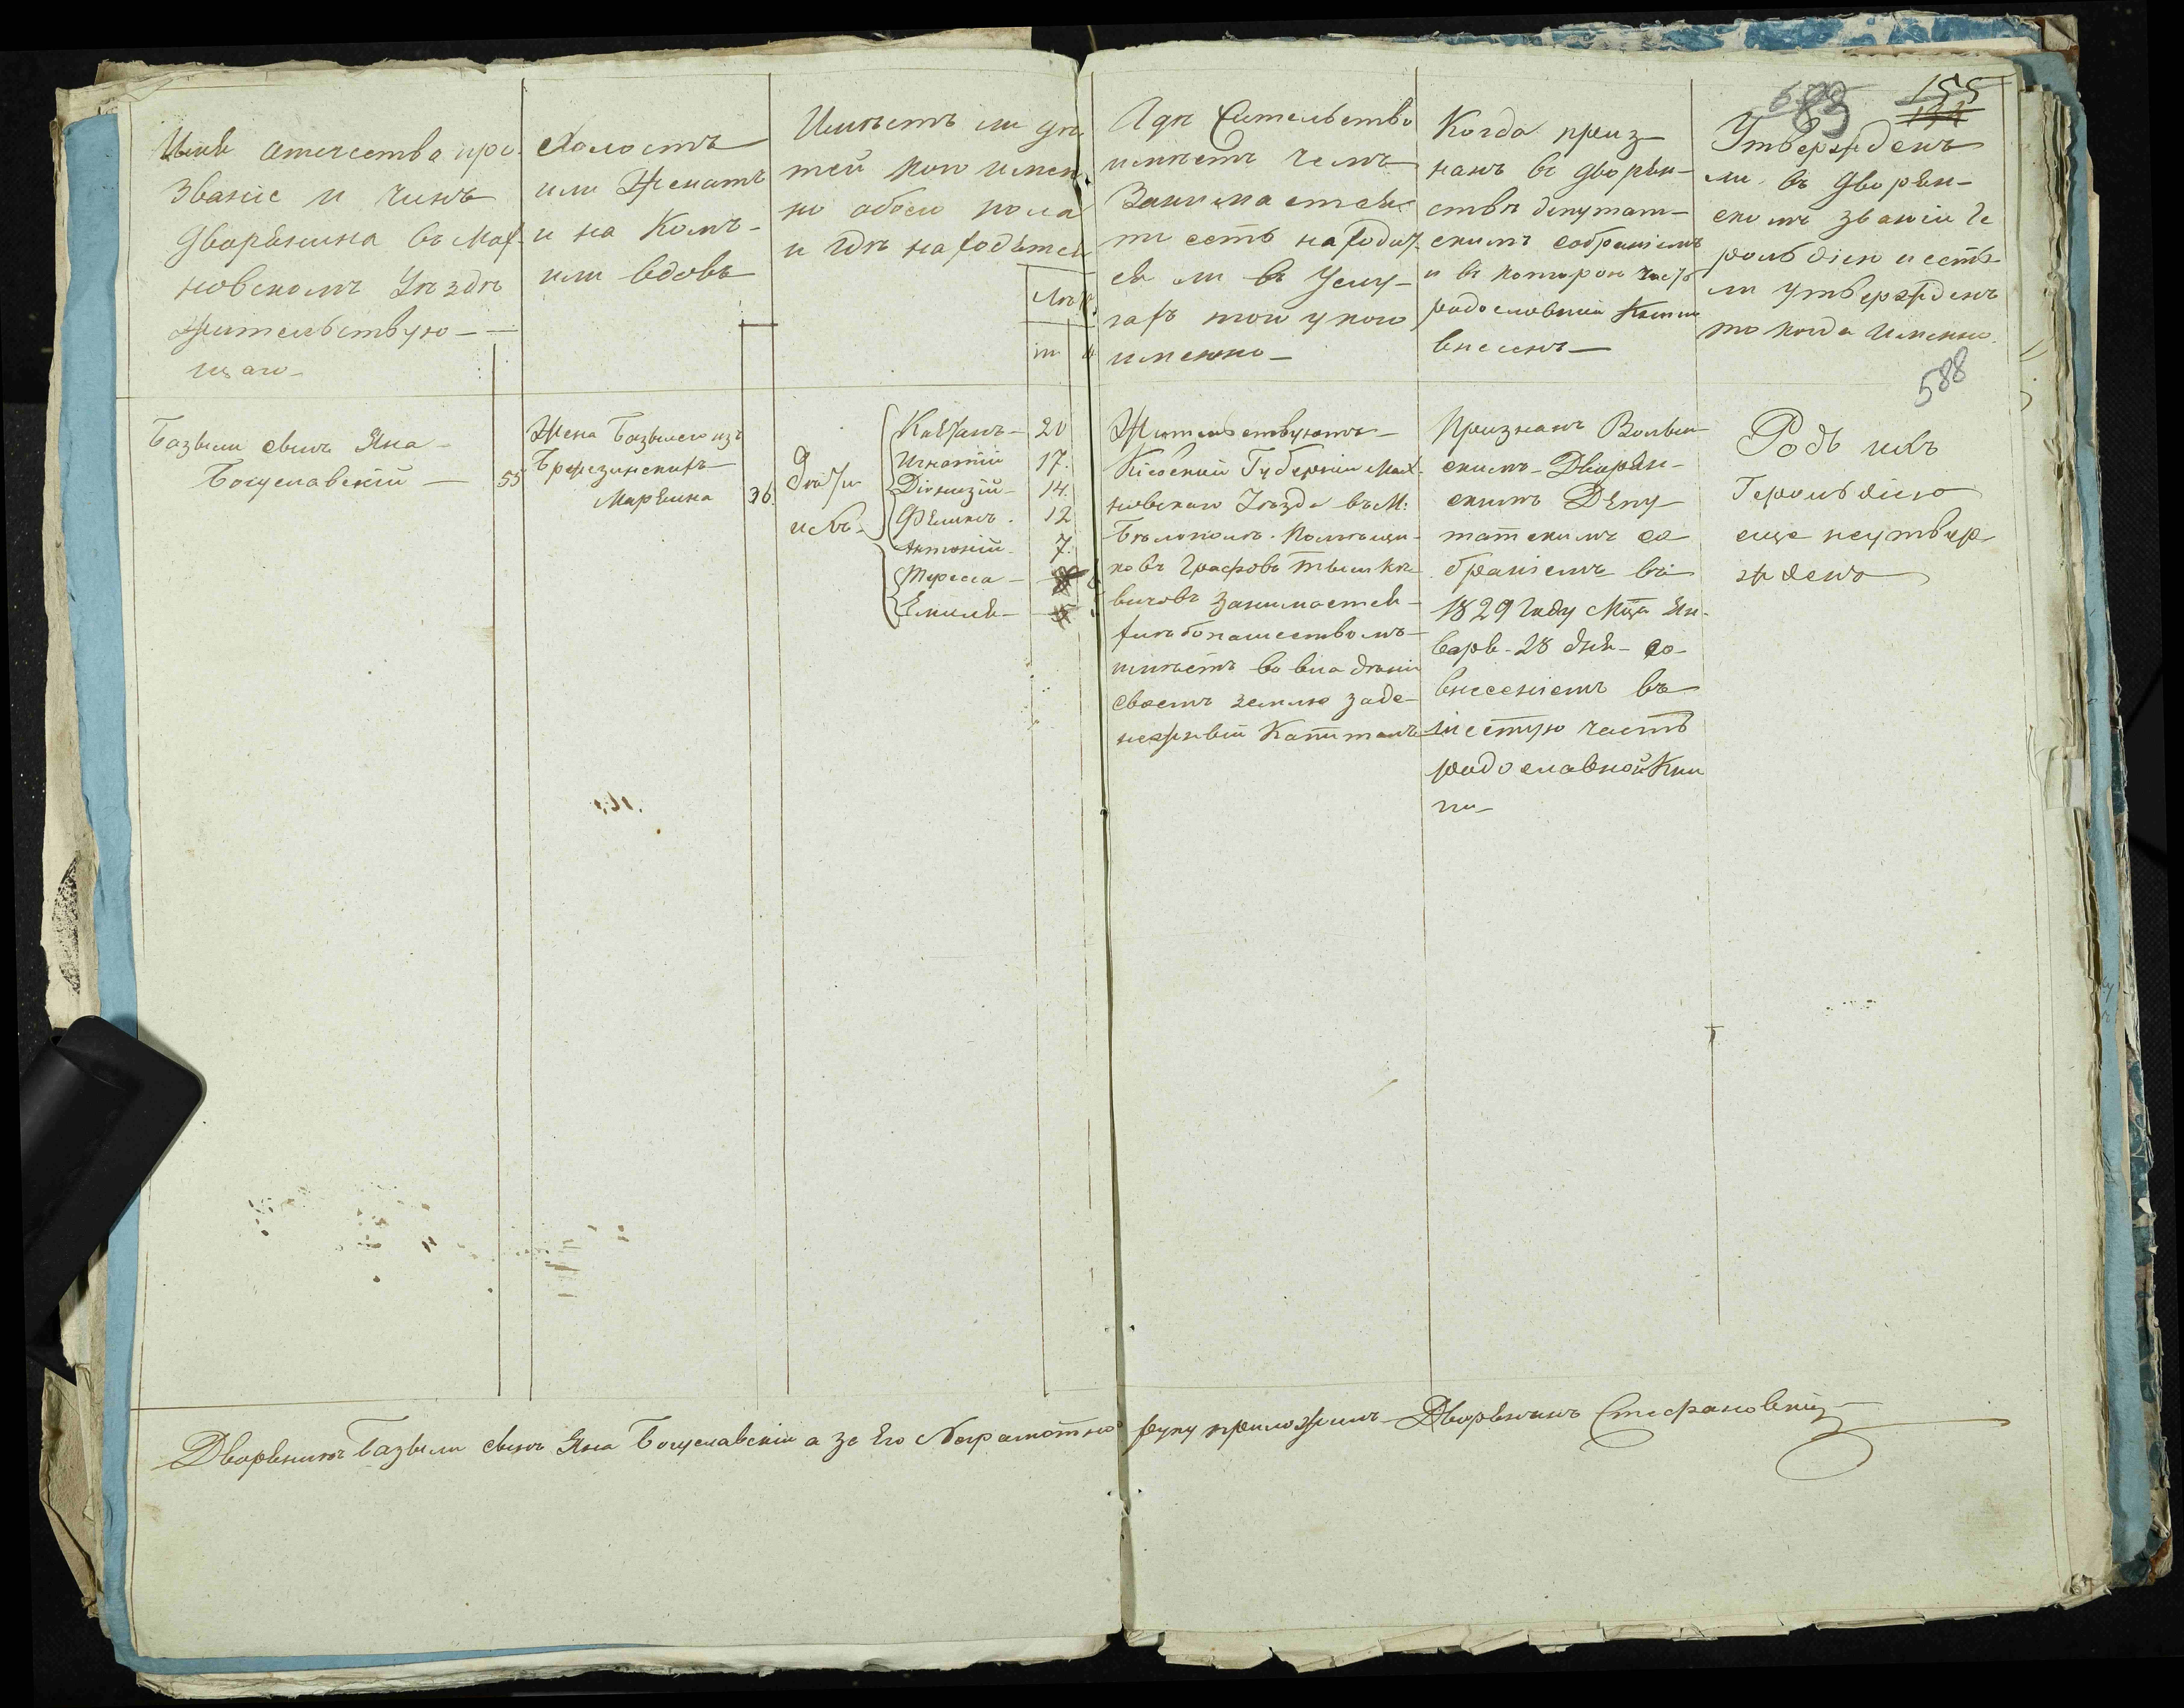 Имя отечество про-
звание и чинъ
дворянина въ Мах-
новскомъ Уездѣ
жительствую-
щаго
холостъ
или Женатъ
и на Комъ-
или вдовъ
Имѣетъ ли дѣ
тей кого имен
но обоего пола
и гдѣ находятся
Лѣта
м
Гдѣ жительство
имѣетъ чемъ
Занимается
то есть находит
ся ли въ Услу-
гахъ то у кого
именно-
Когда приз-
нанъ въ дворян-
ствѣ депутат-
скимъ собраніемъ
и въ которою часть
родословной Книги
внесенъ-
Утвержденъ
ли въ дворян-
скомъ званіи Ге
рольдіею и есть-
ли утвержденъ
то когда именно.
83
155
588
Базыли сынъ Яна-
Богуславскій- 55
Жена Базылего изъ
Бржезинскихъ-
Маріяна 36.
Дѣти
ихъ
Каетанъ- 20
Игнатій 17.
Діонизій- 14.
Феликсъ. 12
Антоній- 7.
Тересса-
Емиля-
Жительствуютъ-
Кіевской Губерніи Мах
новскаго Уѣзда въ М:
Бѣлополѣ. Помѣщи-
ковъ Графовъ Тышкѣ
вичовъ занимается-
хлѣбопашествомъ-
имѣетъ во владѣніи
своемъ землю за де-
нежный Капиталъ
Признанъ Волын
скимъ-Дворян-
скимъ Депу-
татскимъ со
браніемъ въ
1829 году Мца Ян-
варя-28 дня-со
внесеніемъ въ
шестую часть
родословной Кни
ги-
Родъ ихъ
Герольдіею
еще неутвер
жденъ
Дворянинъ Базыли сынъ Яна Богуславскій а за Его Неграмотно руку приложилъ-Дворянинъ Стефановскій